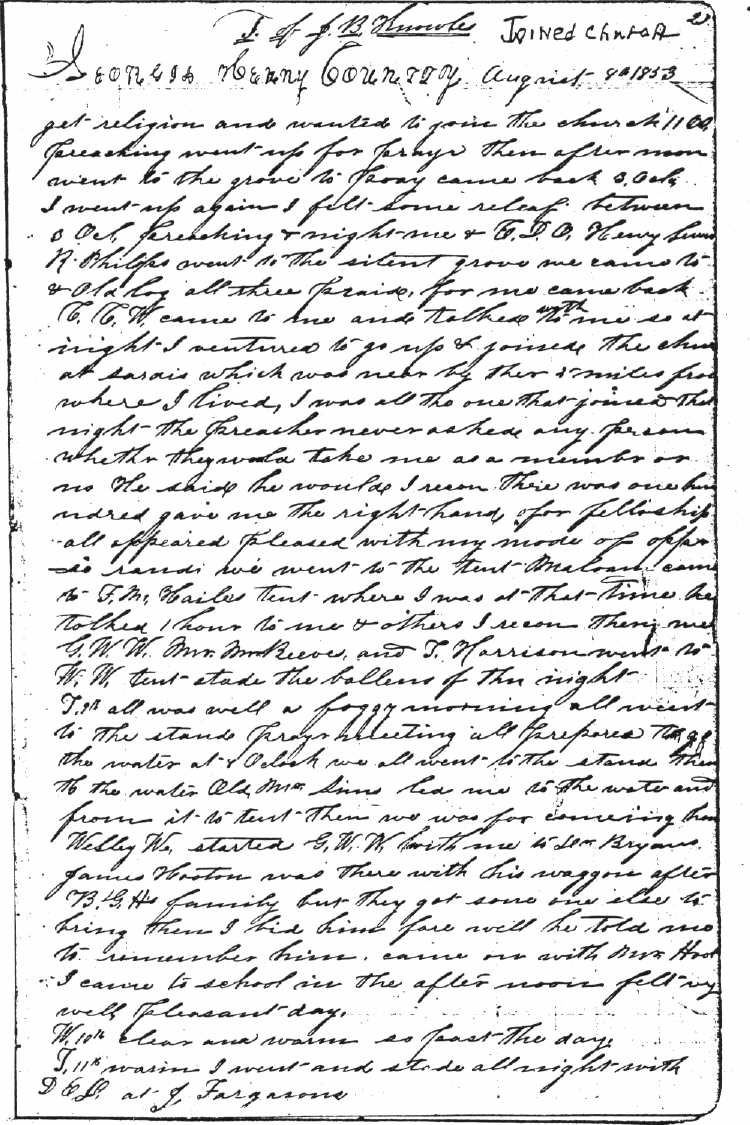 J. of J. B. Knowles Joined Church 2
Georgia Henry County August 8th 1853
get religion and wanted to join the church 11 Oc,
preaching went up for prayr then after noon
went to the grove to pray came back 3, Ock,
I went up again I felt some releaf between
3 Oct, preaching & night me & F. D. O. Henry Lewis
R. Philips went to the silent grove we came to
& Old log all three praid, for me came back
C. C. W. came to me and talked with to me so at
night I ventured to go up & joined the chur
at sardis which was near by ther 3 miles from
where I lived, I was all the one that joined that
night the preacher never asked any person
whethr they would take me as a membr or
no He said he would I recon there was one hu
ndred gave me the right hand, of or felloship
all appeared pleased with my mode of oppr
randi we went to the tent came
to F. M. Haile's tent where I was at that time he
talked 1 hour to me & others I recon then me
G. W. W. Mr. McReeve, and T. Harrison went to
W. W. tent stade the ballens of the night
T. 9th all was well a foggy morning all went
to the stand prayr meeting all prepared to go
the water at 8 Oclock we all went to the stand then
to the water Old Mr Sims led me to the water and
from it to tent then we was for comeing hom
Welley W. started G. W. W. with me to Bryans
James Hooton was there with his waggon after
B. G. Hs family but they got some one else to
bring them I bid him fare well he told me
to remember him. came on with Mr Hoot
I came to school in the after noon felt vry
well pleasant day.
W. 10th clear and warm so past the day.
T, 11th warm I went and stade all night with
D E L. at J, Fargasons